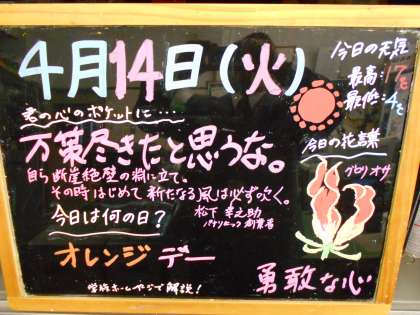 4月14日(火)
今日の天気
最高:17℃
最低:4℃
君の心のポケットに…
万策尽きたと思うな。
自ら断崖絶壁の淵に立て。
その時はじめて新たなる風は必ず吹く。
松下 幸之助
パナソニック 創業者
今日の花言葉
グロリオサ
勇敢な心
今日は何の日?
オレンジデー
学校ホームページで解説!